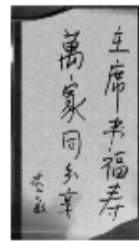 主席来福寿
萬家同分享